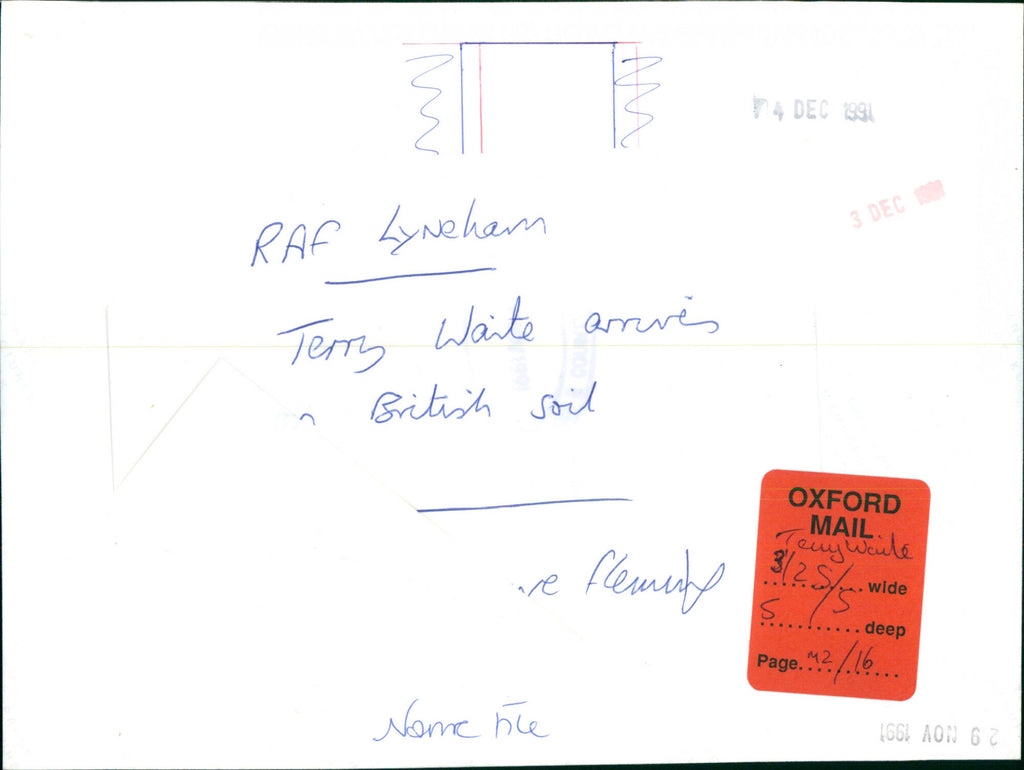 4 DEC 1991
3 DEC
RAF Lyneham
Terry Waite arrives
n British soil
re Fleming
OXFORD
MAIL
Terry Waite
3/25/ wide
5 /5 deep
Page M2/16
Name File
29 NOV 1991